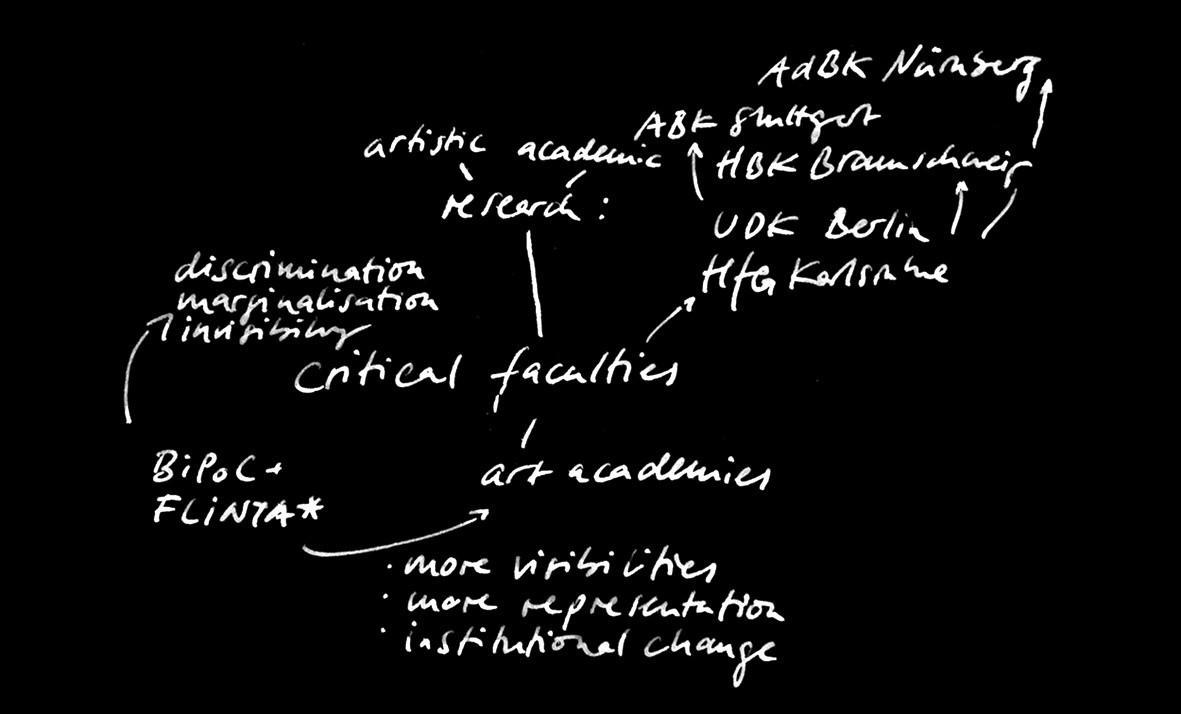 AdBK Nürnberg
ABK Stuttgart
artistic academic
HBK Braunschweig
research:
UDK Berlin
HfG Karlsruhe
discrimination
marginalisation
invisibility
critical faculties
BiPoC+
FLiNTA*
art academies
· more visibilities
· more representation
· institutional change